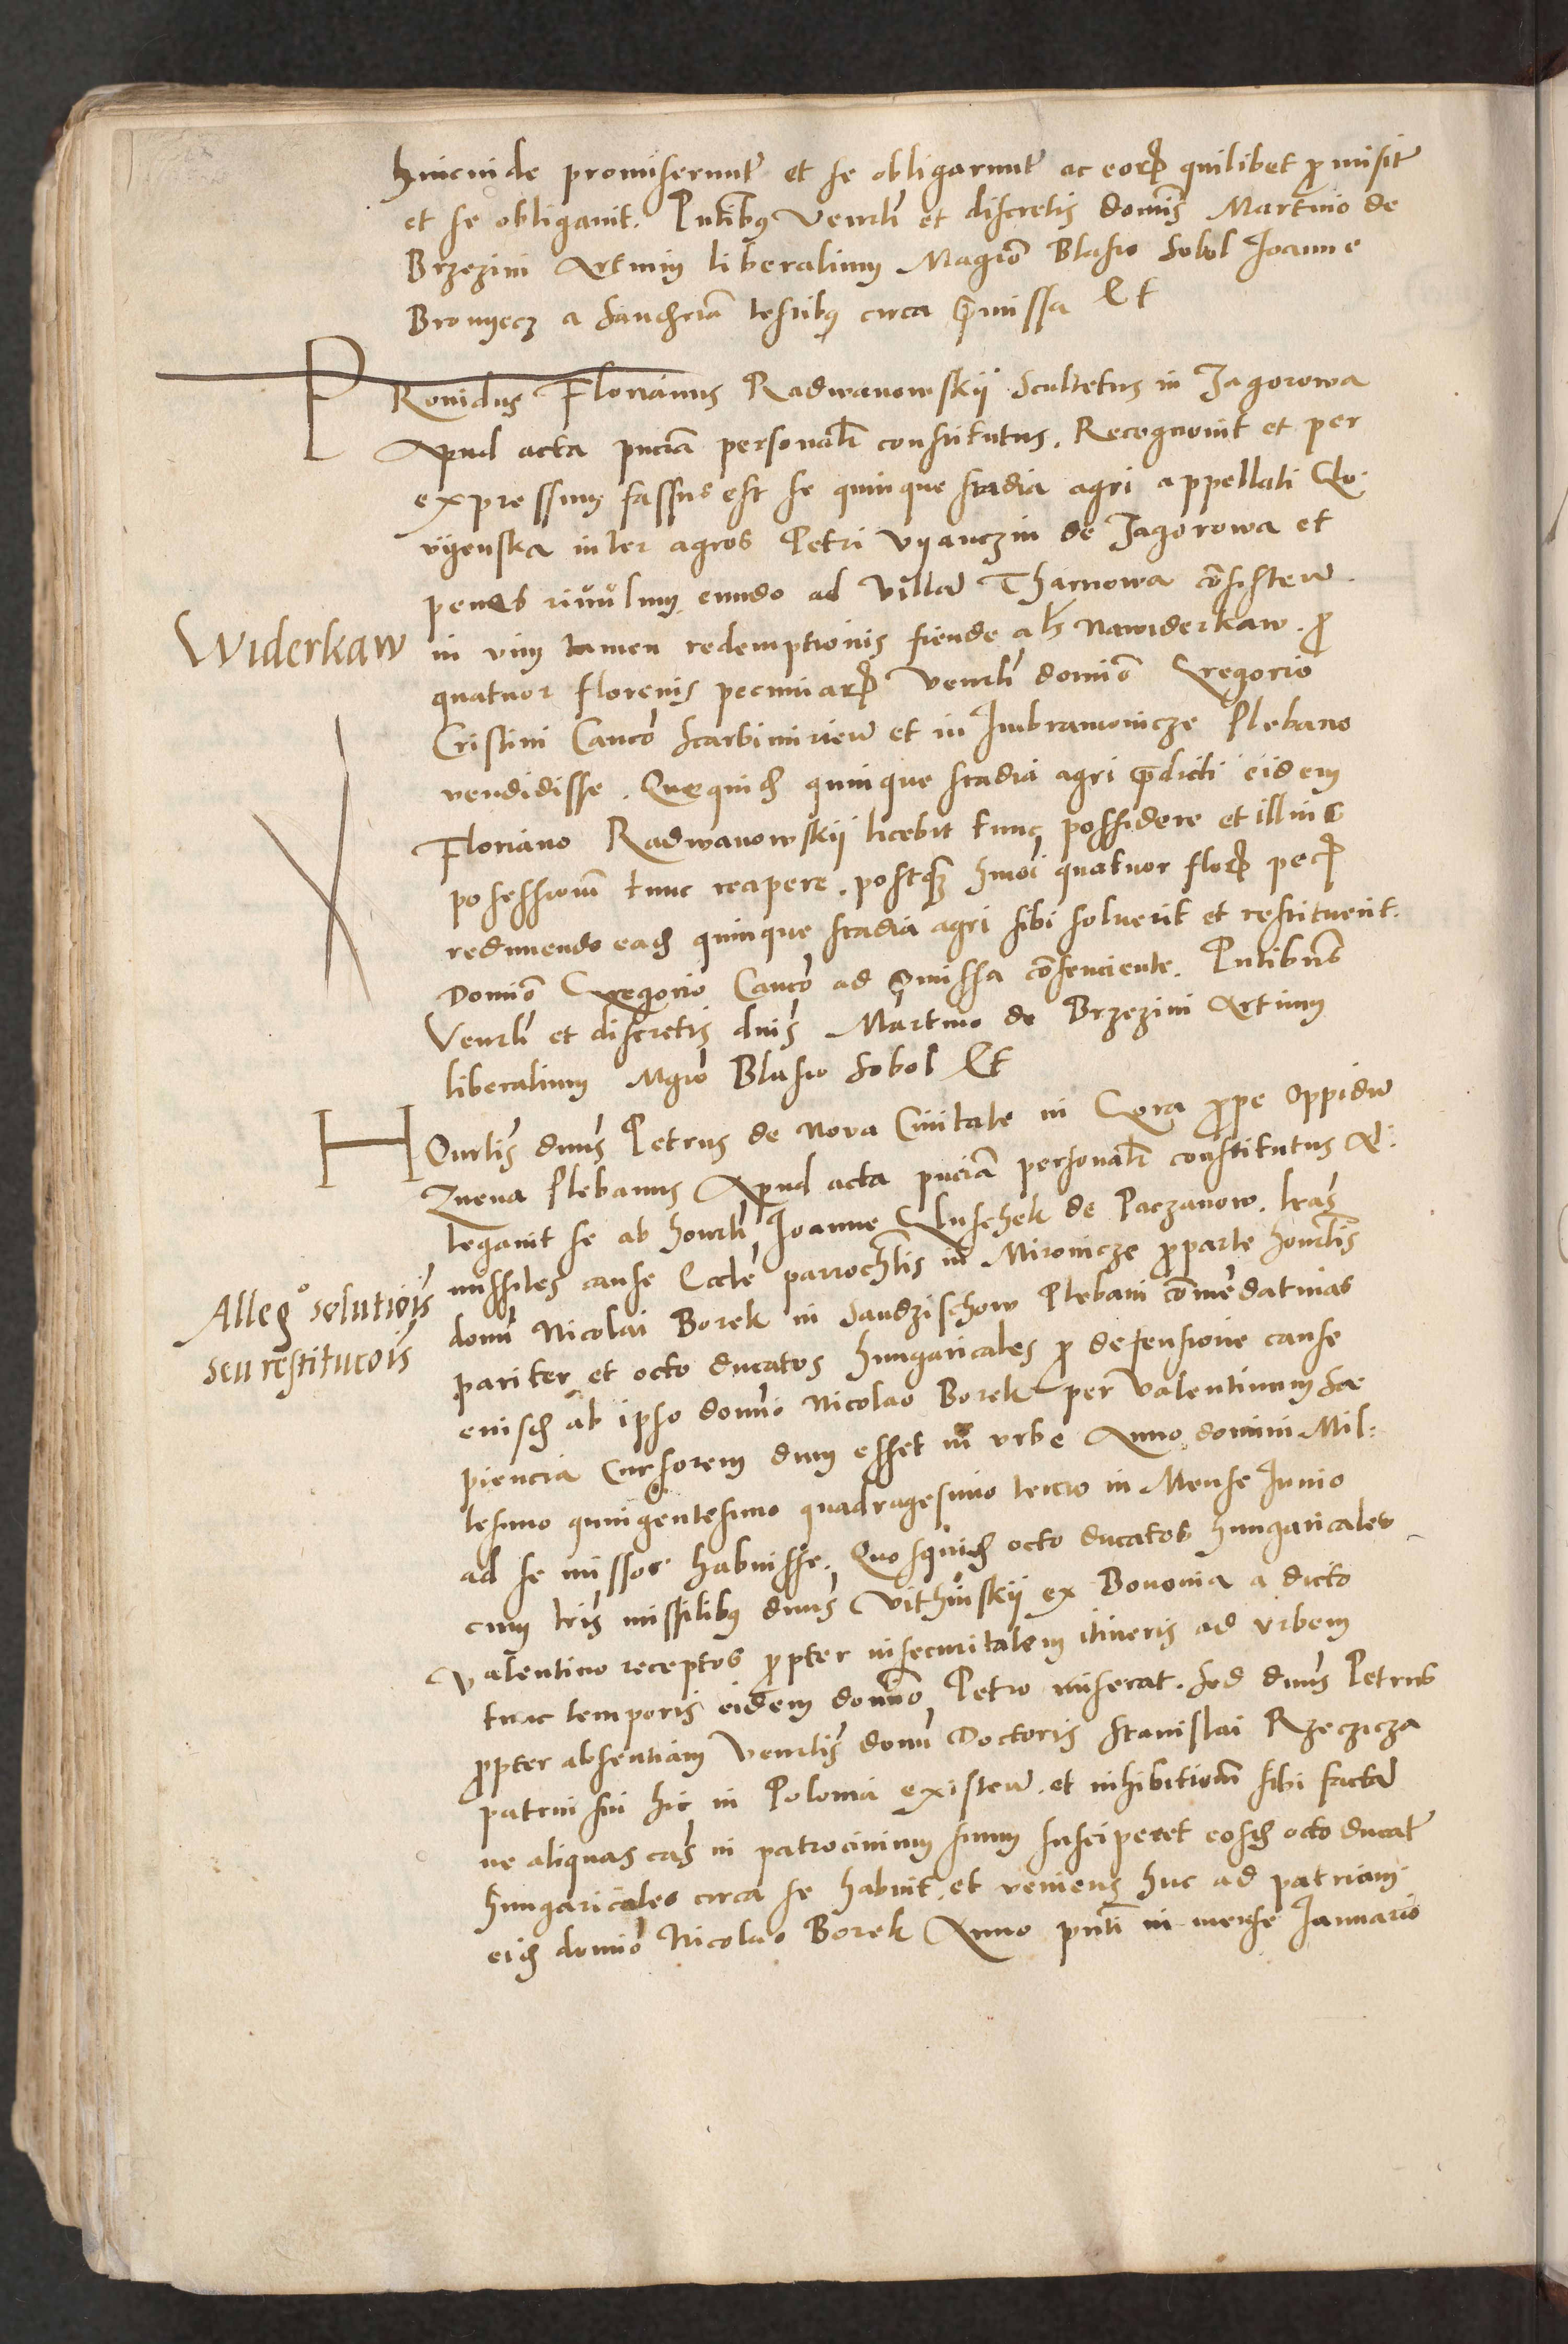 hincinde promiserunt et se obligarunt ac eorꝝ quilibet ꝓmisit
et se obligauit. Pntibꝰ venrli et discretis dominis Martino de
Brzezini Artium liberalium Magrõ Blasio Sobol Joanne
Bronyecz a sanctiã testibꝰ circa p̃missa Et
PRouidus Florianus Radwanowskij Scultetus in Jagorowa
Apud acta pnciã personalr constitutus. Recognouit et per
expressum fassus est se quinque stadia agri appellati Clo.
vyenska inter agros Petri Vyanczin de Jagorowa et
penes riuulum eundo ad villã Tharnowa cõsisten.
Widerkaw
in vim tamen redemptionis fiende als Nawiderkaw. ꝓ
quatuor florenis pecuniarꝝ venrli domiõ Gregorio
Cristini Canco Scarbimirien et in Imbramouicze Plebano
vendidisse. Quequidẽ quinque stadia agri p̃dicti eidem
Floriano Radwanowskij licebit tunc possidere et illius
posessionẽ tunc reapere. postqꝫ hmõi quatuor florꝝ pecꝝ
redimendo eadẽ quinque stadia agri sibi soluerit et restituerit.
Domiõ Gregorio Canco ad p̃missa cõsenciente. Pntibus
Venrli et discretis dnis Martino de Brzezini Artium
liberalium Mgro Blasio Sobol Et
HOnrlis dnus Petrus de Nova Ciuitate in Gora ꝓpe oppidũ
Znena Plebanus Apud acta pnciã personalr constitutus Al:
legauit se ab honrli Joanne Gluschek de Paczanow. lras
missiles cause Eccle parrochlis in Mironicze ꝓparte honrlis
Allego solutiõis
seu restitucõis
domi Nicolai Borek in Sandzischow Plebani cõmẽdatinas
pariter et octo ducatos hungaricales ꝓ defensione cause
eiusdẽ ab ipso domio Nicolao Borek per Valentinum Sa
piencia Cursorem dum esset in vrbe Anno domini Mil:
lesimo quingentesimo quadragesimo tercio in Mense Junio
ad se missos habuisse. Quosquidẽ octo ducatos hungaricales
cum lris missilibꝰ dnus Vithinskij ex Bononia a dicto
Valentino receptos ꝓpter insecuritatem itineris ad vrbem
tunc temporis eidem domino Petro miserat. Sed dnus Petrus
ꝓpter absentiam Venrlis domi Doctoris Stanislai Rzeczicza
patrui sui hic in Polonia existen. et inhibitionẽ sibi factã
ne aliquas cas in patrocinium suum susciperet eosdẽ octo ducat
hungaricales circa se habuit. et veniens huc ad patriam
eidẽ domiõ Nicolao Borek Anno pnti in mense Januario